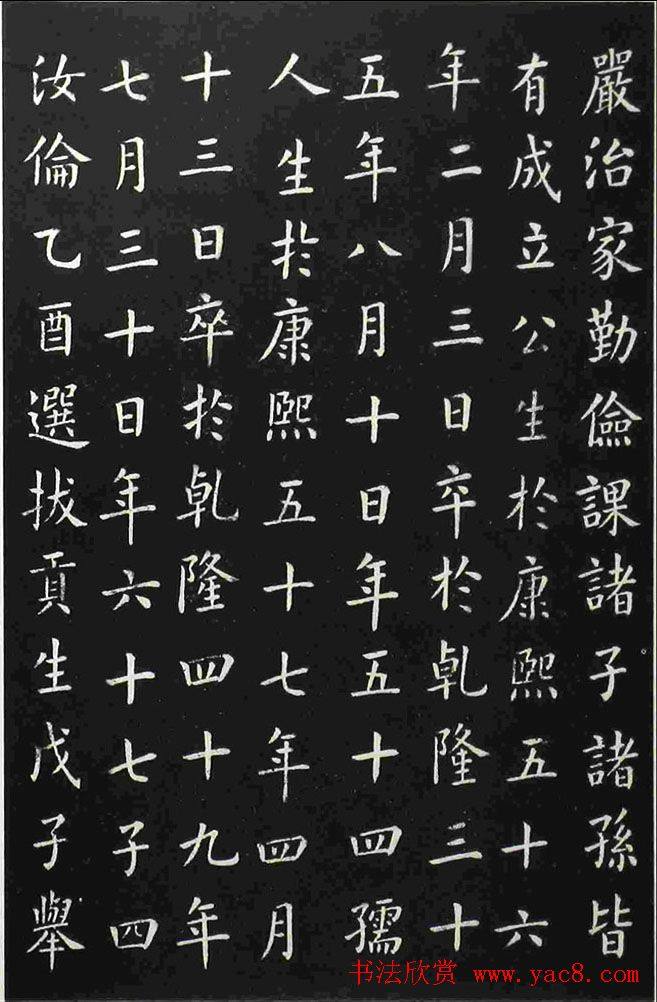 嚴治家勤儉課諸子諸孫皆
有成立公生於康熙五十六
年二月三日卒於乹隆三十
五年八月十日年五十四孺
人生於康熙五十七年四月
十三日卒於乹隆四十九年
七月三十日年六十七子四
汝倫乙酉選拔貢生戊子舉
书法欣赏 www.yac8.com